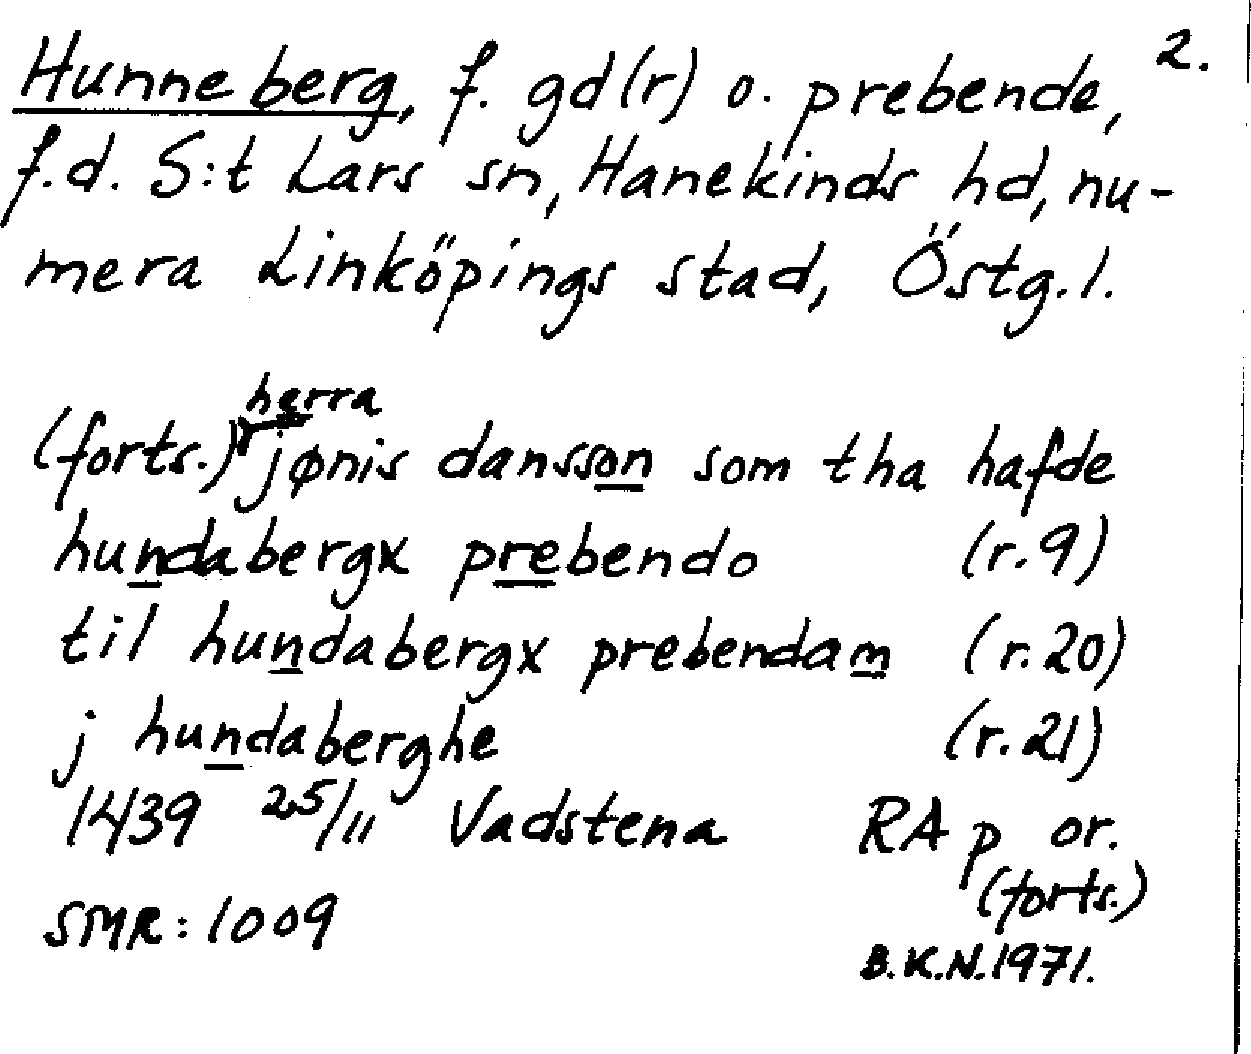 2.
Hunneberg, f. gd(r) o. prebende,
f.d. S:t Lars sn, Hanekinds hd, nu-
mera Linköpings stad, Östg.l.
herra
(forts.) jønis dansson som tha hafde
hundabergx prebendo (r.9)
til hundabergx prebendam (r.20)
j hundaberghe (r.21)
1439 25/11 Vadstena RA p or.
(forts.)
SMR: 1009
B.K.N. 1971.